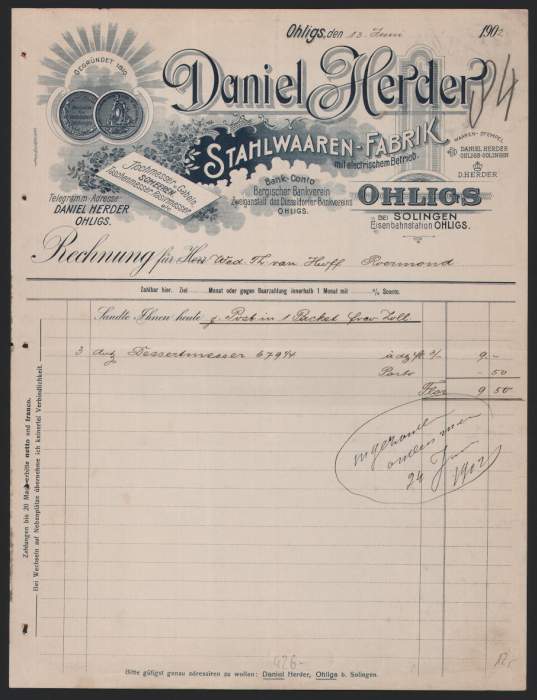 Ohligs, den 13 Juni 1902
GEGRÜNDET 1810.
Daniel Herder
STAHLWAAREN-FABRIK
mit electrischem Betrieb.
WAAREN-STEMPEL
DANIEL HERDER
OHLIGS-SOLINGEN
D.HERDER
Tischmesser-Gabeln
SCHEEREN
Taschenmesser-Rasirmesser
etc.
Telegramm-Adresse:
DANIEL HERDER
OHLIGS.
Bank-Conto
Bergischer Bankverein
Zweiganstalt des Düsseldorfer Bankvereins
OHLIGS.
OHLIGS
BEI SOLINGEN
Eisenbahnstation OHLIGS.
Rechnung für Herr Wed. Th van Hwff Roermond
Zahlbar hier. Ziel Monat oder gegen Baarzahlung innerhalb 1 Monat mit % Sconto.
Sandte Ihnen heute p. Post in 1 Packet frco Zoll
3 dutz Dessertmesser 6794 à dtz 9.-
Porto - 50
Flor 9 50
24 Juni 1902
Zahlungen bis 20 Mark erbitte netto und franco.
Bei Wechseln auf Nebenplätze übernehme ich keinerlei Verbindlichkeit.
426-
Bitte gütigst genau adressiren zu wollen: Daniel Herder, Ohligs b. Solingen.